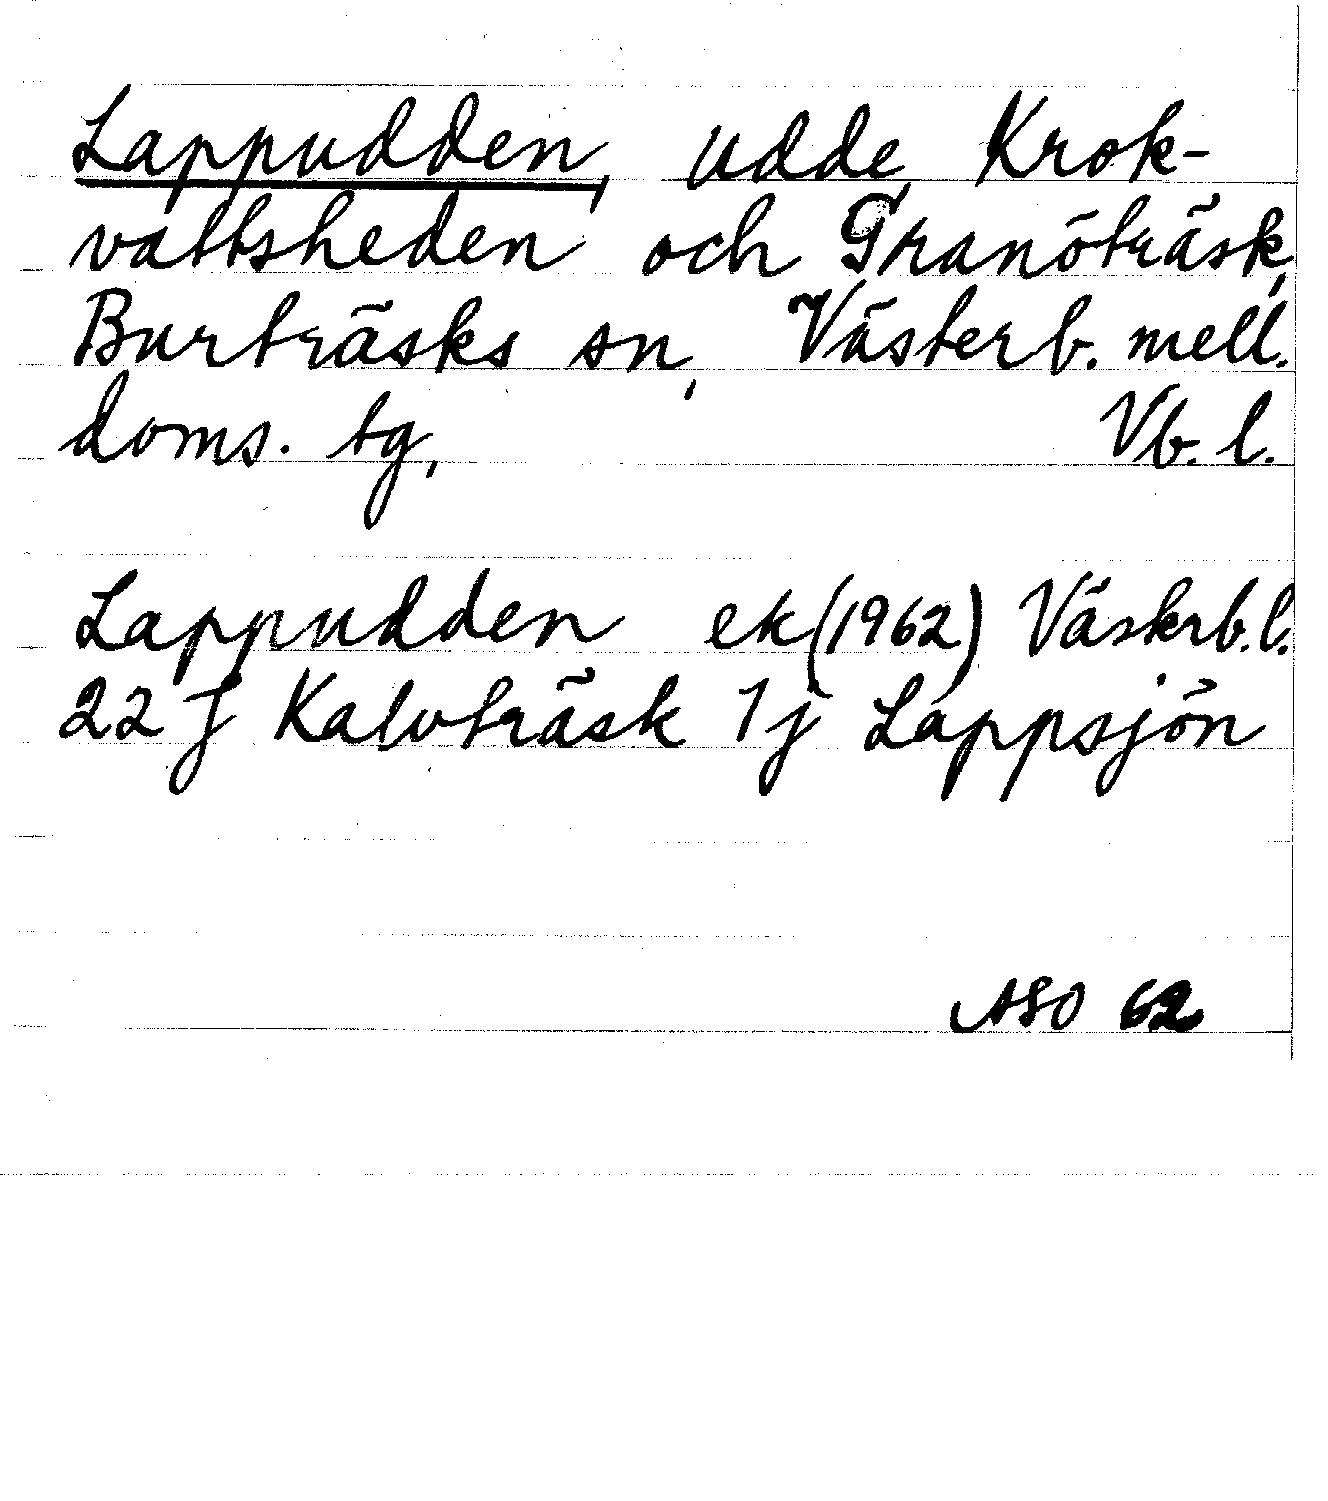 Lappudden, udde, Krok-
vattsheden och Granöträsk,
Burträsks sn, Västerb. mell.
doms. tg, Vb. l.
Lappudden ek (1962) Västerb. l.
22 J Kalvträsk 1j Lappsjön
ASO 62